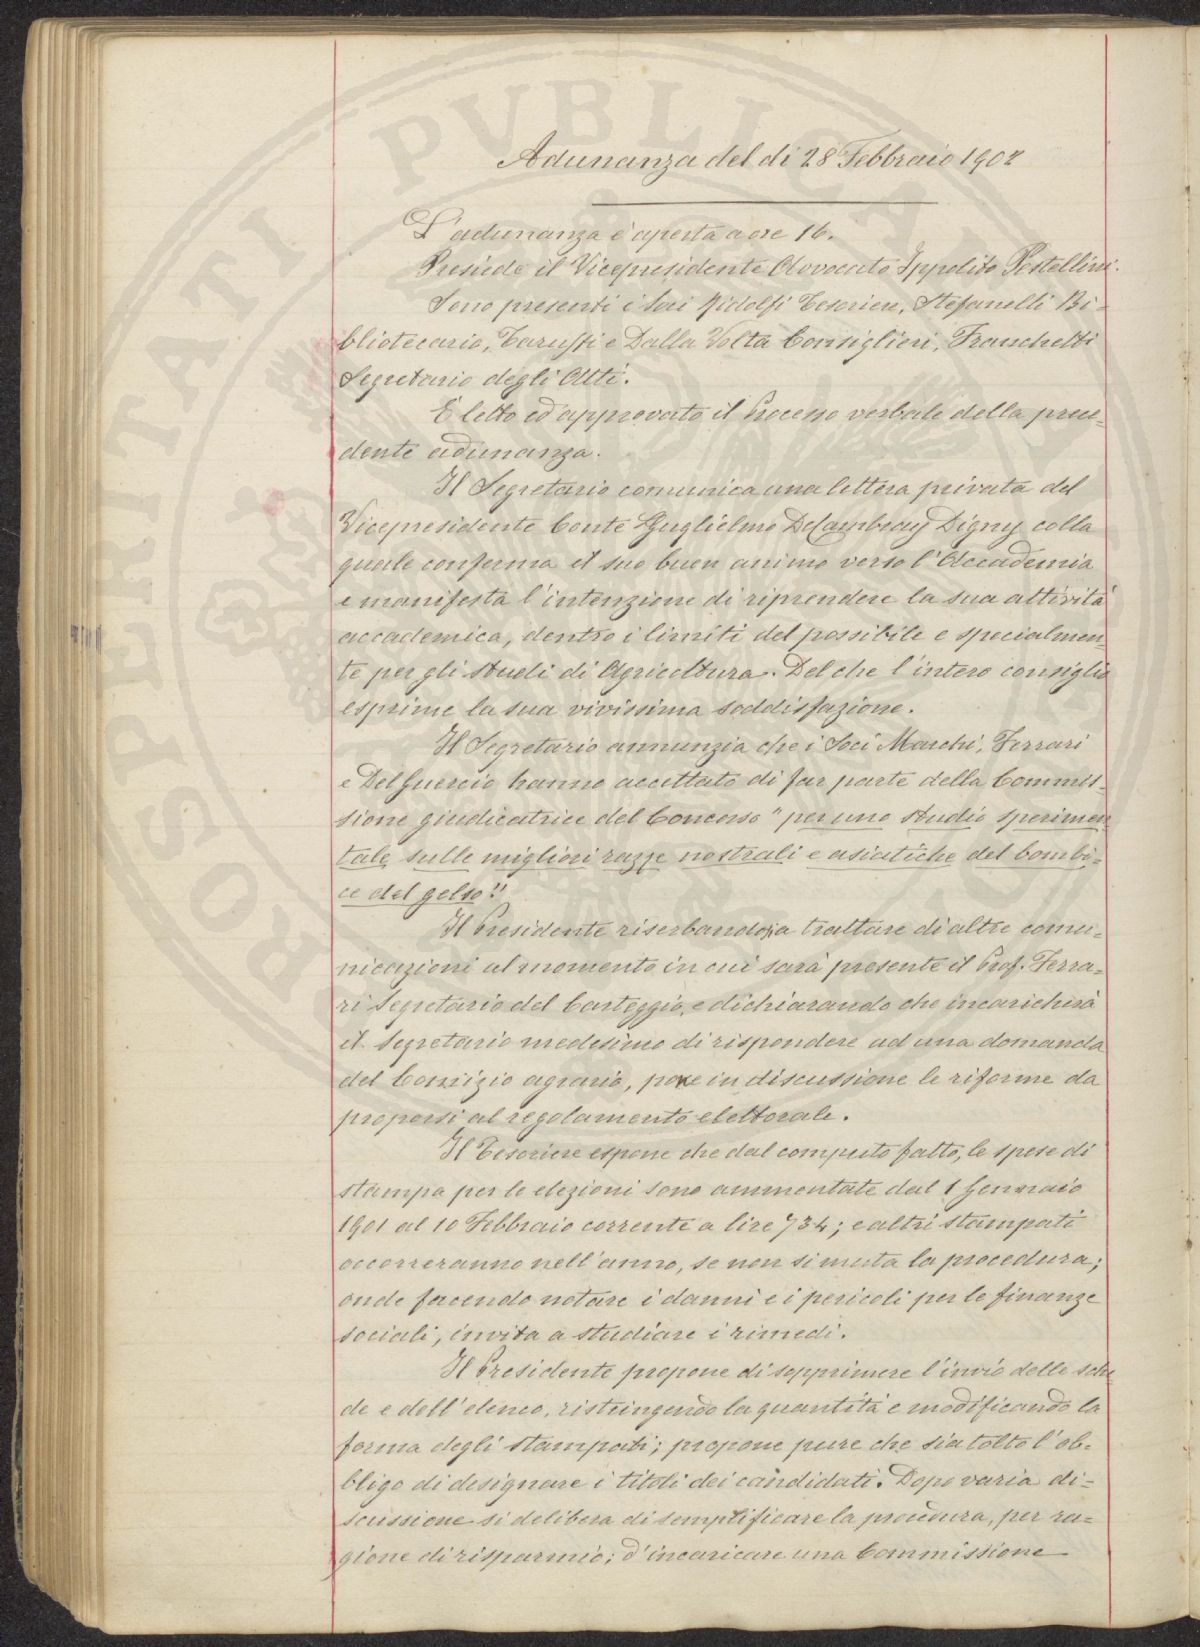 Adunanza del dì 28 Febbraio 1902
L'adunanza è aperta a ore 16.
Presiede il Vicepresidente Avvocato Ippolito Pestellini.
Sono presenti i Soci Ridolfi Tesoriere, Stefanelli Bi-
bliotecario, Tarussi e Dalla Volta Consiglieri, Franchetti
Segretario degli Atti.
È letto ed approvato il Processo verbale della prece-
dente adunanza.
Il Segretario comunica una lettera privata del
Vicepresidente Conte Guglielmo De Cambray Digny colla
quale conferma il suo buon animo verso l'Accademia
e manifesta l'intenzione di riprendere la sua attività
accademica, dentro i limiti del possibile e specialmen-
te per gli studi di Agricoltura. Del che l'intero consiglio
esprime la sua vivissima soddisfazione.
Il Segretario annunzia che i Soci Marchi, Ferrari
e Del Guercio hanno accettato di far parte della Commis-
sione giudicatrice del Concorso "per uno studio sperimen-
tale sulle migliori razze nostrali e asiatiche del bombi-
ce del gelso"
Il Presidente riserbandosi a trattare di altre comu-
nicazioni al momento in cui sarà presente il Prof. Ferra-
ri Segretario del Carteggio, e dichiarando che incaricherà
il Segretario medesimo di rispondere ad una domanda
del Comizio agrario, pone in discussione le riforme da
proporsi al regolamento elettorale.
Il Tesoriere espone che dal computo fatto, le spese di
stampa per le elezioni sono ammontate dal 1 Gennaio
1901 al 10 Febbraio corrente a lire 734; e altri stampati
occorreranno nell'anno, se non si muta la procedura;
onde facendo notare i danni e i pericoli per le finanze
sociali, invita a studiare i rimedi.
Il Presidente propone di sopprimere l'invio delle sche-
de e dell'elenco, ristringendo la quantità e modificando la
forma degli stampati; propone pure che sia tolto l'ob-
bligo di designare i titoli dei candidati. Dopo varia di-
scussione si delibera di semplificare la procedura, per ra-
gione di risparmio; d'incaricare una Commissione
PROSPERITATI PVBLICAE